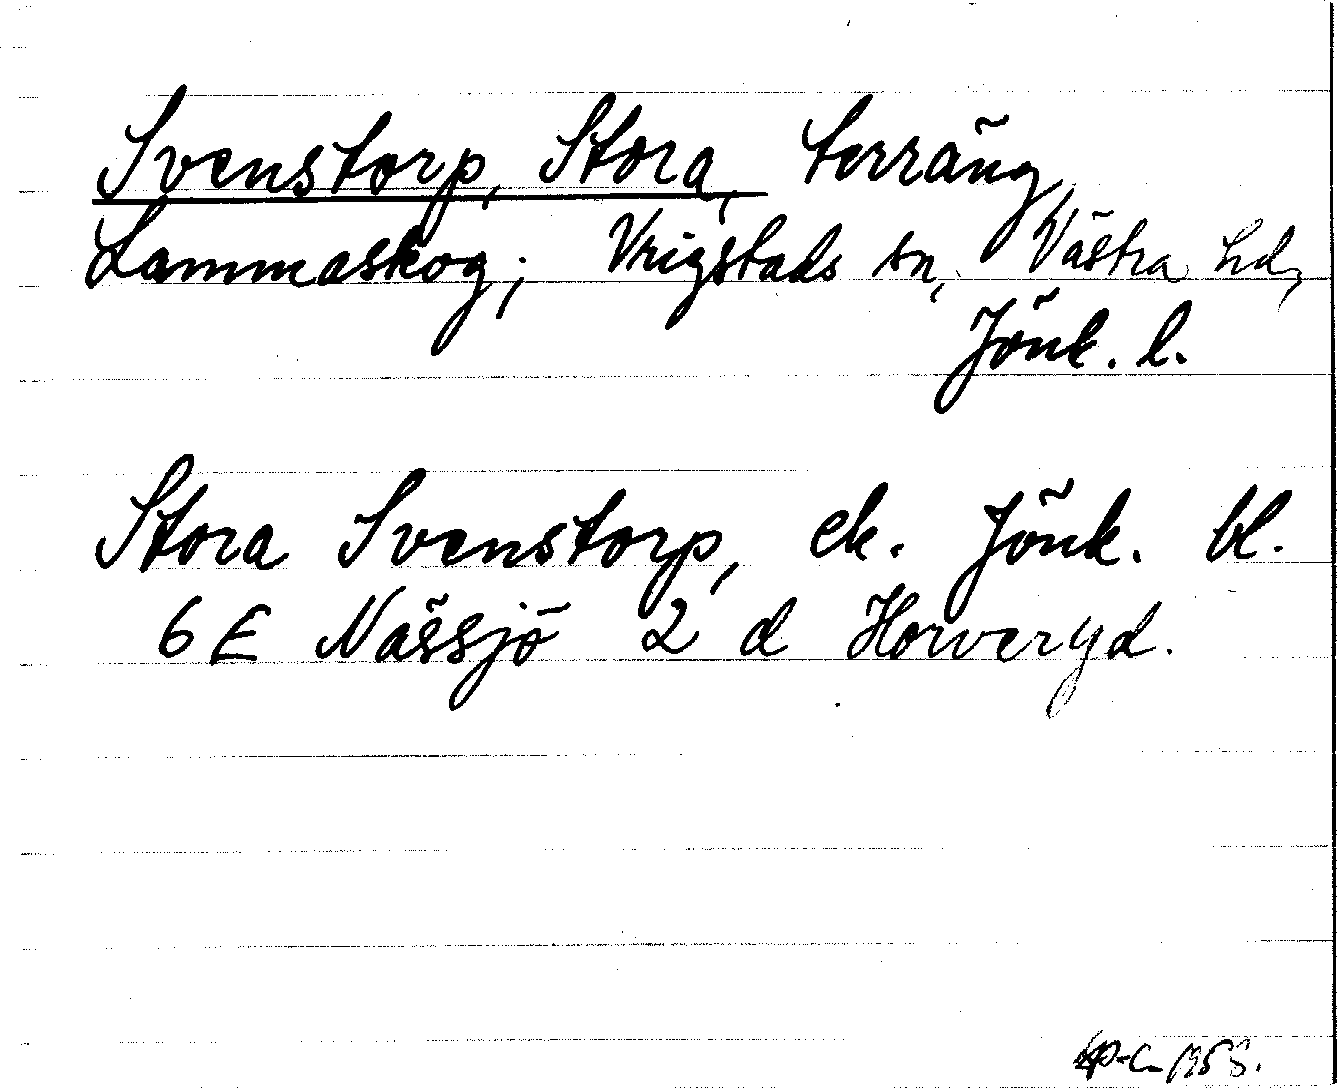 Svenstorp, Stora, terräng,
Lammaskog; Vrigstads sn, Västra hd,
Jönk. l.
Stora Svenstorp, ek. Jönk. bl.
6 E Nässjö 2 d Horveryd.
1958.